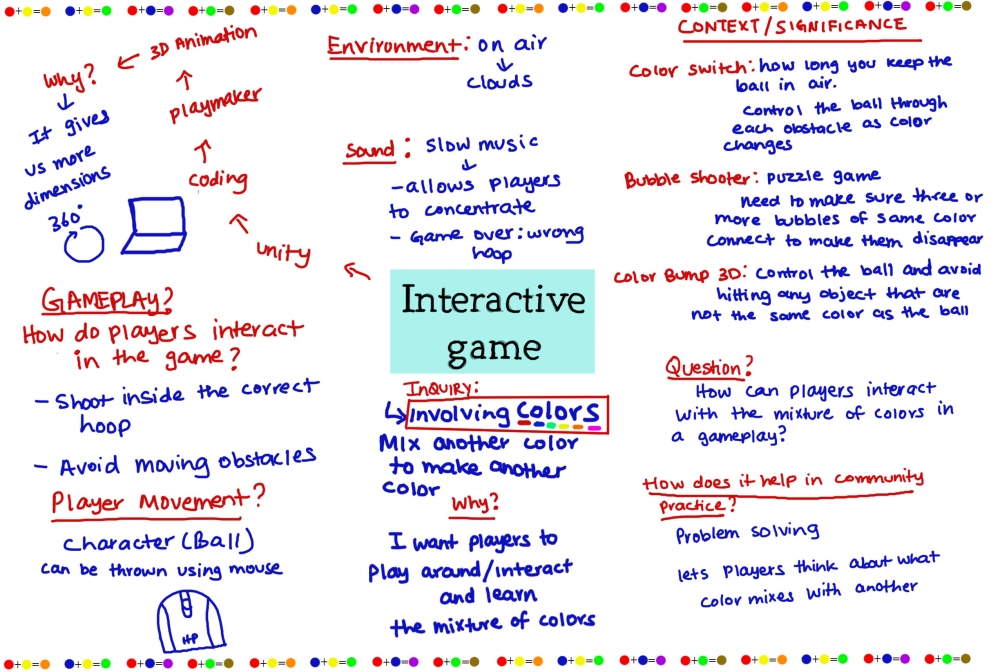 3D Animation
Why?
It gives
us more
dimensions
360°
playmaker
coding
unity
GAMEPLAY?
How do players interact
in the game?
- Shoot inside the correct
hoop
- Avoid moving obstacles
Player Movement?
Character (Ball)
can be thrown using mouse
HP
Environment: on air
clouds
Sound: Slow music
- allows players
to concentrate
- Game over: wrong
hoop
Interactive
game
INQUIRY:
involving colors
Mix another color
to make another
color
Why?
I want players to
Play around/interact
and learn
the mixture of colors
CONTEXT/SIGNIFICANCE
Color Switch: how long you keep the
ball in air.
control the ball through
each obstacle as color
changes
Bubble shooter: puzzle game
need to make sure three or
more bubbles of same color
connect to make them disappear
Color Bump 3D: control the ball and avoid
hitting any object that are
not the same color as the ball
Question?
How can players interact
with the mixture of colors in
a gameplay?
How does it help in community
practice?
Problem solving
lets players think about what
color mixes with another